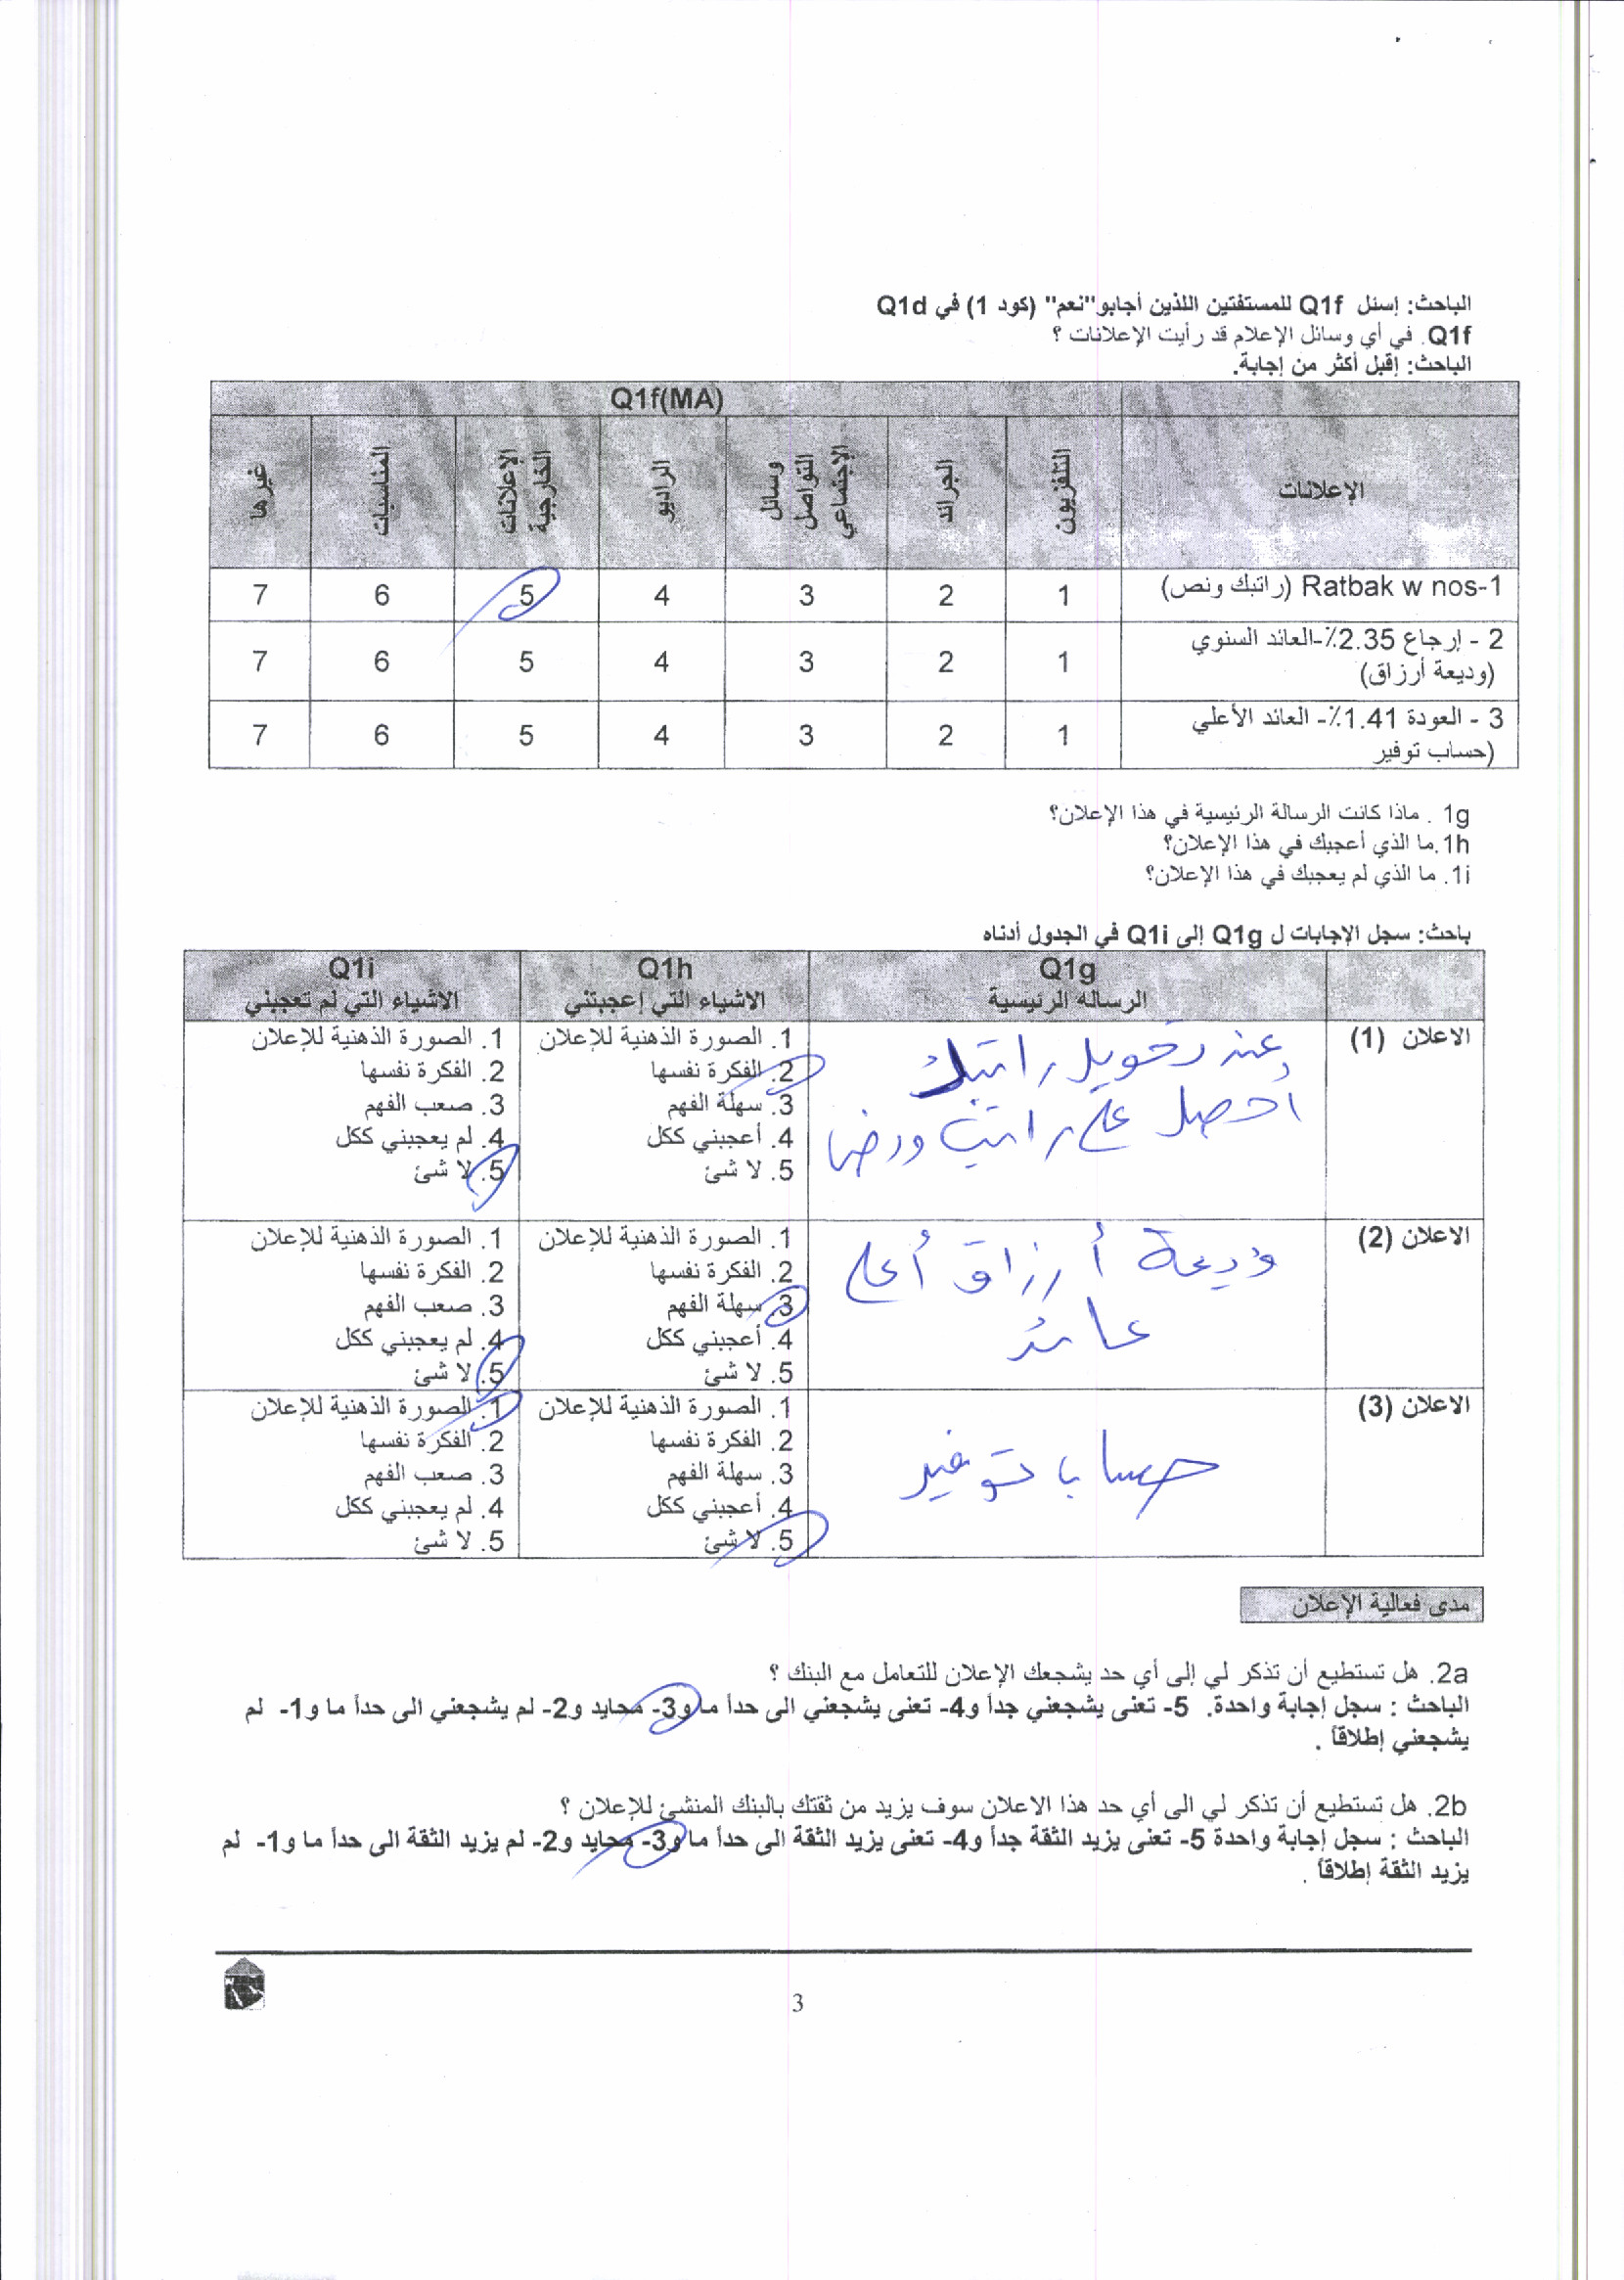 الباحث: إسئل Q1f للمستفتين اللذين أجابو"نعم" (كود 1) في Q1d
Q1f. في أي وسائل الإعلام قد رأيت الإعلانات ؟
الباحث: إقبل أكثر من إجابة.
Q1f(MA)
الإعلانات
التلفزيون
الجرائد
وسائل التواصل الإجتماعي
الراديو
الإعلانات الخارجية
المناسبات
غيرها
1-Ratbak w nos (راتبك ونص) 1 2 3 4 5 6 7
2 - إرجاع 2.35٪-العائد السنوي
(وديعة أرزاق) 1 2 3 4 5 6 7
3 - العودة 1.41٪- العائد الأعلي
(حساب توفير 1 2 3 4 5 6 7
1g . ماذا كانت الرسالة الرئيسية في هذا الإعلان؟
1h.ما الذي أعجبك في هذا الإعلان؟
1i. ما الذي لم يعجبك في هذا الإعلان؟
باحث: سجل الإجابات ل Q1g إلى Q1i في الجدول أدناه
Q1g
الرساله الرئيسية
Q1h
الاشياء التي إعجبتني
Q1i
الاشياء التي لم تعجبني
الاعلان (1)
عند تحويل راتبك
أحصل على راتب ونص
1. الصورة الذهنية للإعلان
2. الفكرة نفسها
3. سهلة الفهم
4. أعجبني ككل
5. لا شئ
1. الصورة الذهنية للإعلان
2. الفكرة نفسها
3. صعب الفهم
4. لم يعجبني ككل
5. لا شئ
الاعلان (2)
وديعة أرزاق أعلى
عائد
1. الصورة الذهنية للإعلان
2. الفكرة نفسها
3. سهلة الفهم
4. أعجبني ككل
5. لا شئ
1. الصورة الذهنية للإعلان
2. الفكرة نفسها
3. صعب الفهم
4. لم يعجبني ككل
5. لا شئ
الاعلان (3)
حساب توفير
1. الصورة الذهنية للإعلان
2. الفكرة نفسها
3. سهلة الفهم
4. أعجبني ككل
5. لا شئ
1. الصورة الذهنية للإعلان
2. الفكرة نفسها
3. صعب الفهم
4. لم يعجبني ككل
5. لا شئ
مدى فعالية الإعلان
2a. هل تستطيع أن تذكر لي إلى أي حد يشجعك الإعلان للتعامل مع البنك ؟
الباحث : سجل إجابة واحدة. 5- تعنى يشجعني جداً و4- تعنى يشجعني الى حداً ما و3- محايد و2- لم يشجعني الى حداً ما و1- لم
يشجعني إطلاقاً .
2b. هل تستطيع أن تذكر لي الى أي حد هذا الاعلان سوف يزيد من ثقتك بالبنك المنشئ للإعلان ؟
الباحث : سجل إجابة واحدة 5- تعنى يزيد الثقة جداً و4- تعنى يزيد الثقة الى حداً ما و3- محايد و2- لم يزيد الثقة الى حداً ما و1- لم
يزيد الثقة إطلاقاً .
3